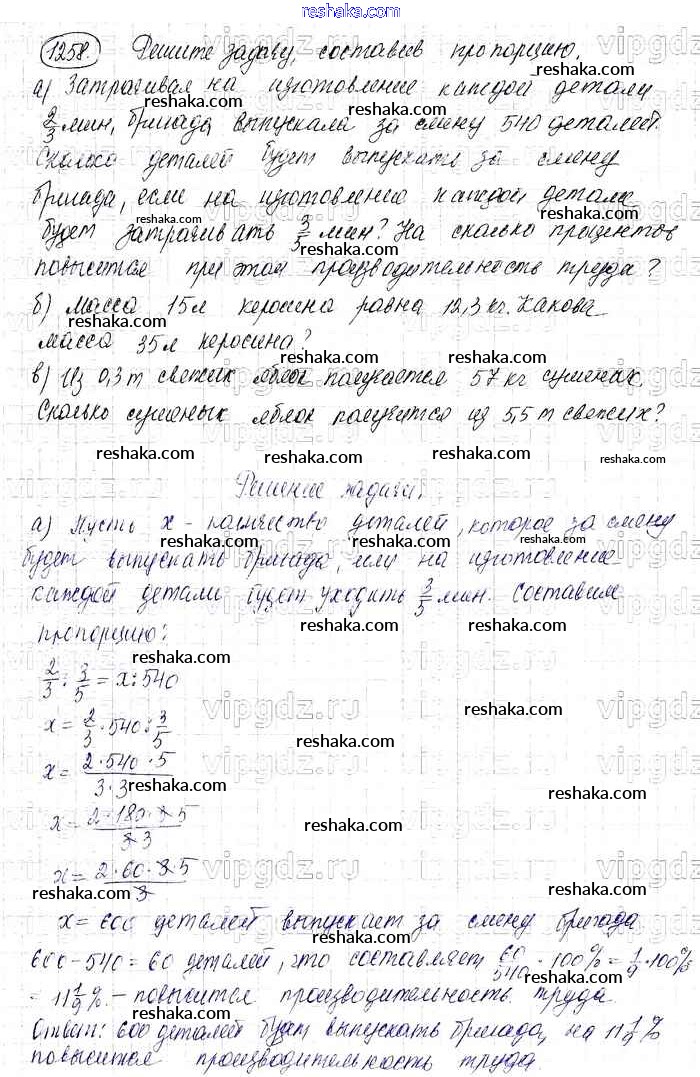 1258. Решите задачу, составив пропорцию.
а) Затрачивая на изготовление каждой детали
2/3 мин, бригада выпускала за смену 540 деталей.
Сколько деталей будет выпускать за смену
бригада, если на изготовление каждой детали
будет затрагивать 3/5 мин? На сколько процентов
повысится при этом производительность труда?
б) Масса 15л керосина равна 12,3 кг. Какова
масса 35л керосина?
в) Из 0,3 т свежих яблок получается 57 кг сушеных.
Сколько сушеных яблок получится из 5,5 т свежих?
Решение задачи.
а) Пусть x - количество деталей, которое за смену
будет выпускать бригада, если на изготовление
каждой детали будет уходить 3/5 мин. Составим
пропорцию:
2/3 : 3/5 = x : 540
x = 2/3 · 540 : 3/5
x = 2·540·5 / 3·3
x = 2·180·3·5 / 3·3
x = 2·60·3·5 / 3
x = 600 деталей выпускает за смену бригада
600 - 540 = 60 деталей, что составляет 60/540 · 100% = 1/9 · 100%
= 11 1/9 % - повысится производительность труда.
Ответ: 600 деталей будет выпускать бригада, на 11 1/9 %
повысится производительность труда.
reshaka.com
vipgdz.ru